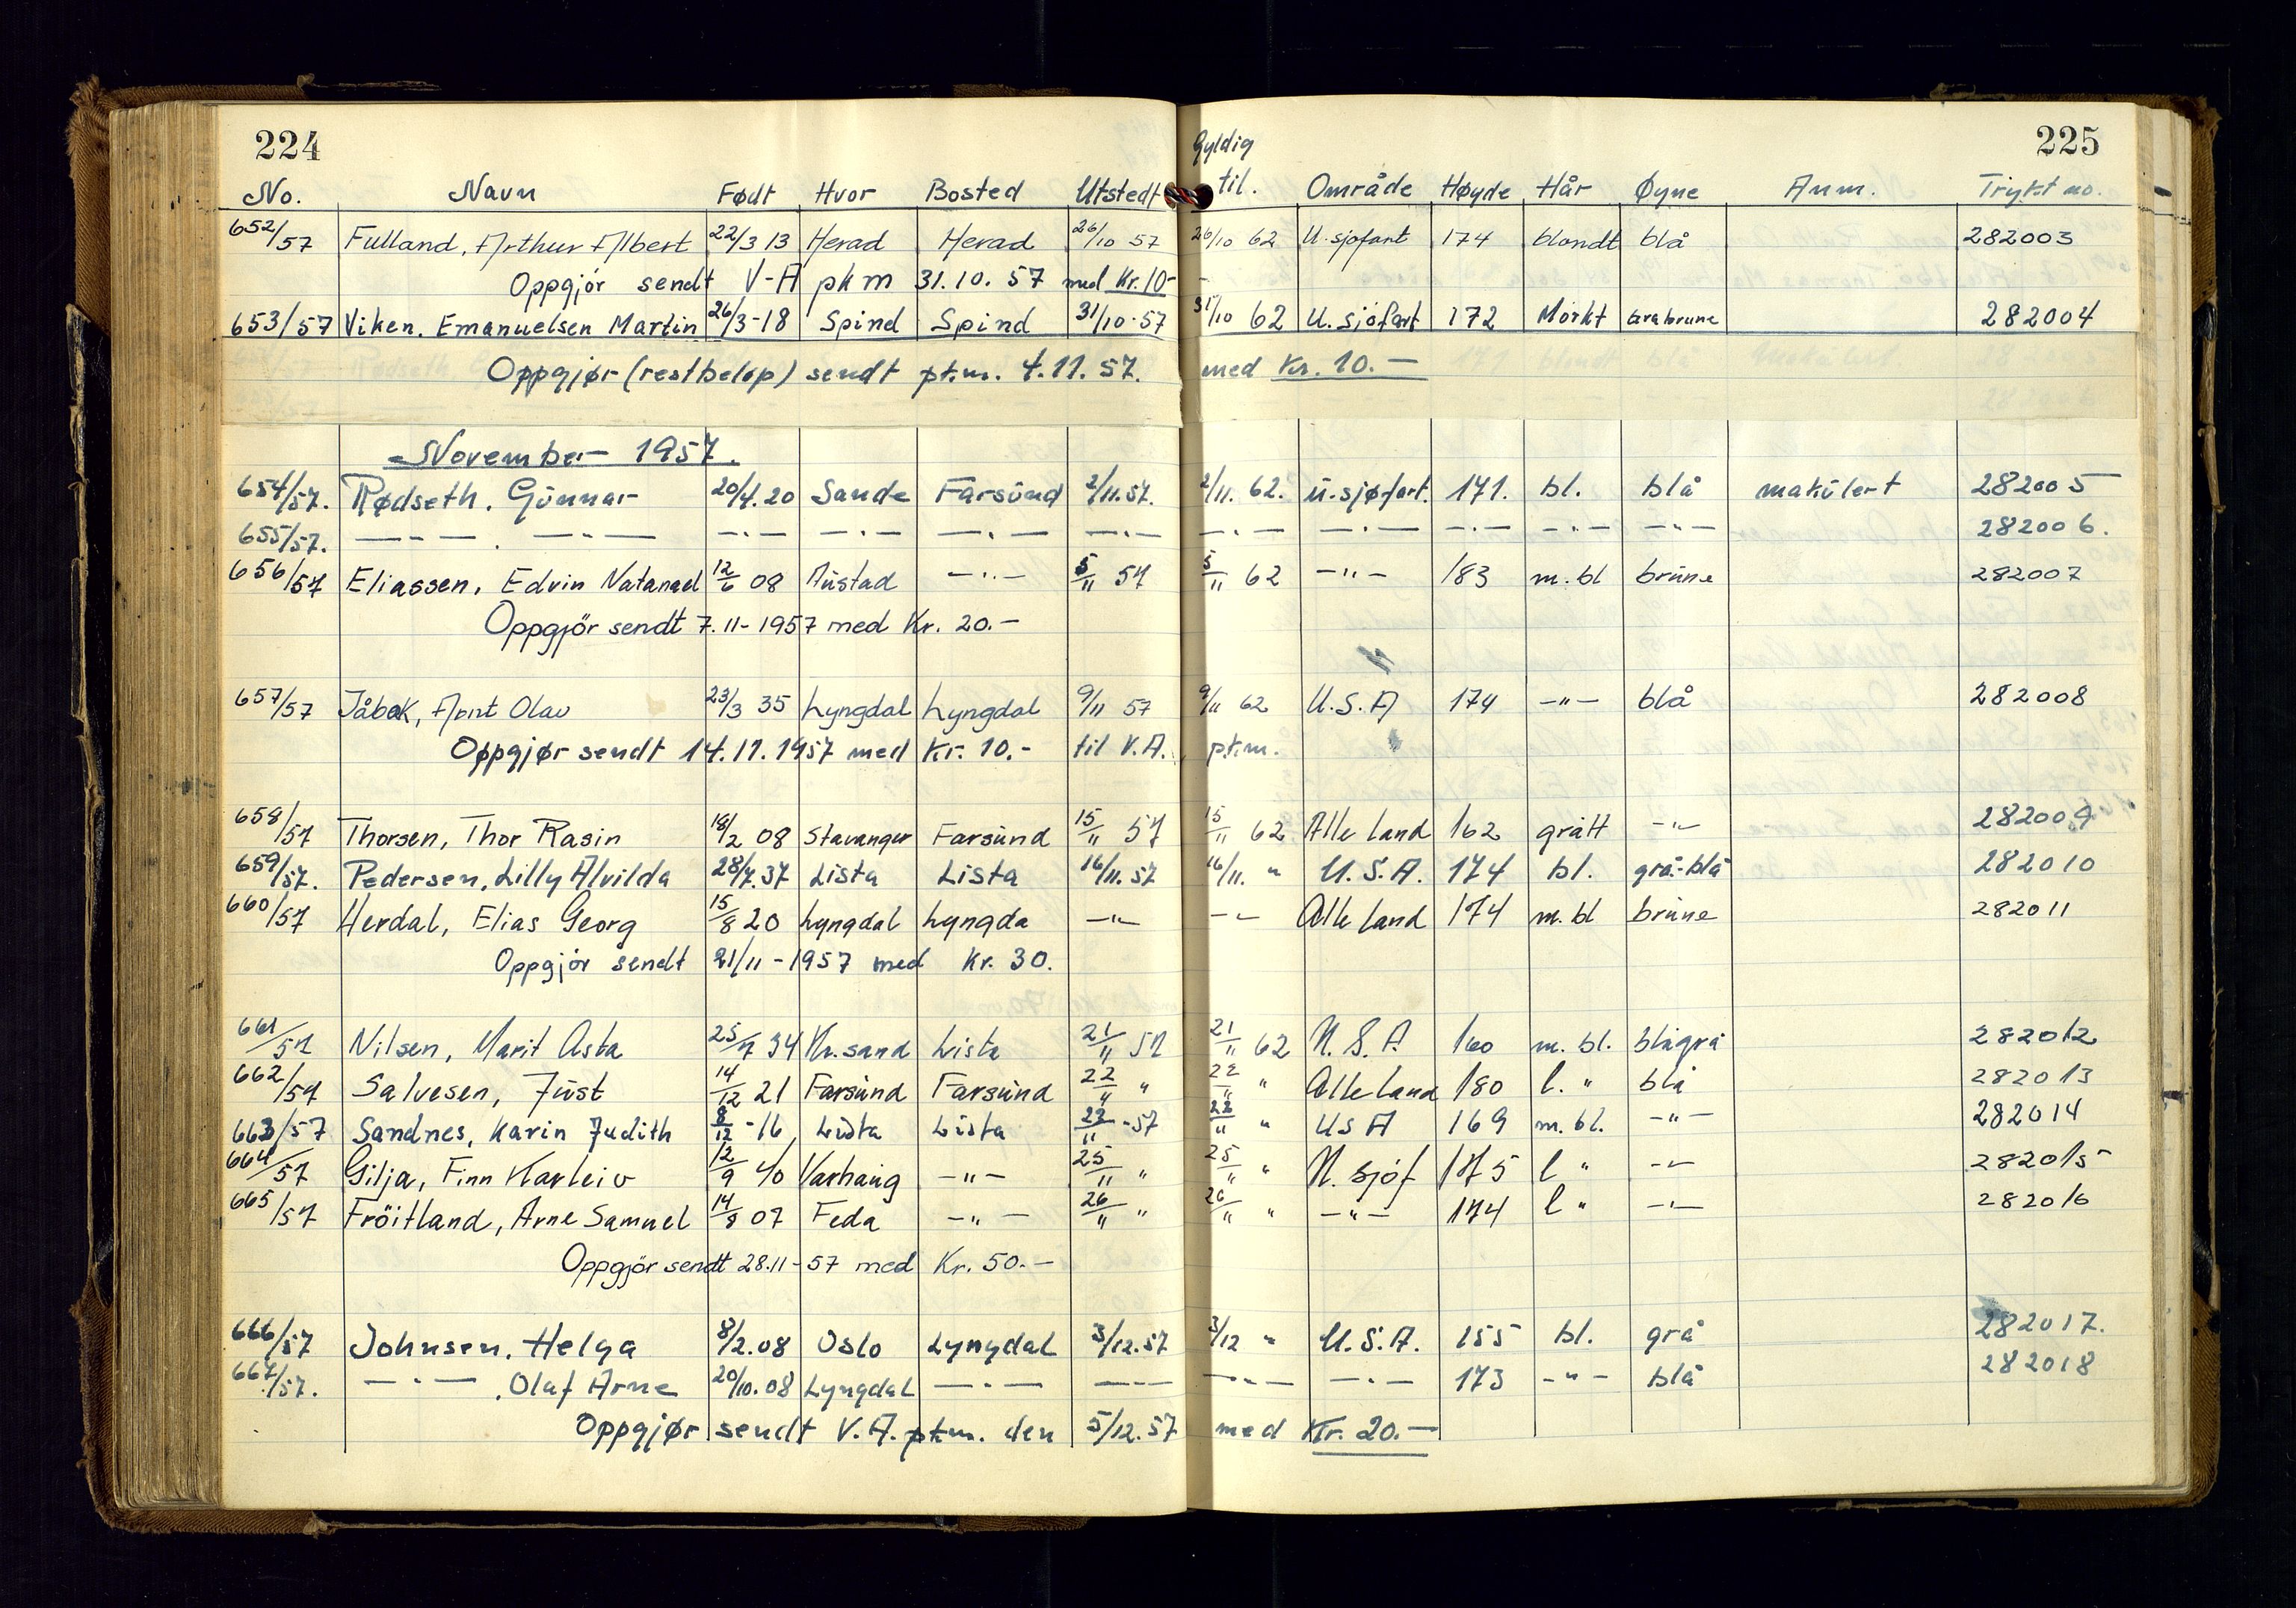 224
Gyldig 225
No. Navn Født Hvor Bosted Utstedt til. Område Høyde Hår Øyne Anm. Trykt no.
652/57 Fulland, Arthur Albert 22/3 13 Herad Herad 26/10 57 26/10 62 U. sjøfart 174 blondt blå 282003
Oppgjør sendt V-A pkm 31.10.57 med Kr. 10-
653/57 Viken. Emanuelsen Martin 26/3-18 Spind Spind 31/10-57 31/10 62 U. sjöfart 172 Mörkt 282004
Oppgjør (restbeløp) sendt ptm. 4.11.57. med Kr. 10.—
November 1957.
654/57. Rødseth. Gunnar 20/4.20 Sande Farsund 2/11.57. 2/11. 62. u.sjøfart. 171. bl. blå makulert 282005
655/57. —"— . —"— —"— —"— —"— —"— —"— —"— —"— —"— —"— 282006.
656/57 Eliassen, Edvin Natanael 12/6 08 Austad —"— 5/11 57 5/11 62 —"— 183 m. bl brune 282007
Oppgjör sendt 7.11-1957 med Kr. 20.—
657/57 Jåbek, Arnt Olav 23/3 35 Lyngdal Lyngdal 9/11 57 9/11 62 U.S.A 174 —"— blå 282008
Oppgjør sendt 14.11.1957 med Kr. 10.- til V.A. ptm.
658/57 Thorsen, Thor Rasin 18/2 08 Stavanger Farsund 15/11 57 15/11 62 Alle land 162 grått —"— 282009
659/57. Pedersen, Lilly Alvilda 28/7.37 Lista Lista 16/11.57 16/11. " U.S.A. 174 bl. grå-blå 282010
660/57 Herdal, Elias Georg 15/8 20 Lyngdal Lyngda —"— —"— Alle land 174 m. bl brune 282011
Oppgjör sendt 21/11-1957 med Kr. 30.
661/57 Nilsen, Marit Asta 25/7 34 Kr.sand Lista 21/11 57 21/11 62 U.S.A. 160 m. bl. blågrå 282012
662/57 Salvesen, Just 14/12 21 Farsund Farsund 22/11 " 22/11 " Alle land 180 l. " blå 282013
663/57 Sandnes, Karin Judith 8/12-16 Lista Lista 22/11-57 22/11 " USA 169 m. bl. —"— 282014
664/57 Gilja, Finn Karleiv 12/9 40 Varhaug —"— 25/11 " 25/11 " U. sjöf 175 l " —"— 282015
665/57 Fröitland, Arne Samuel 14/8 07 Feda —"— 26/11 " 26/11 " —"— 174 l " —"— 282016
Oppgjör sendt 28.11-57 med Kr. 50.—
666/57 Johnsen, Helga 8/2.08 Oslo Lyngdal 3/12.57 3/12 " U.S.A. 155 bl. grå 282017.
667/57. —"— , Olaf Arne 20/10.08 Lyngdal —"— —"— —"— —"— 173 —"— blå 282018
Oppgjør sendt V.A. ptm. den 5/12.57 med Kr. 20.—